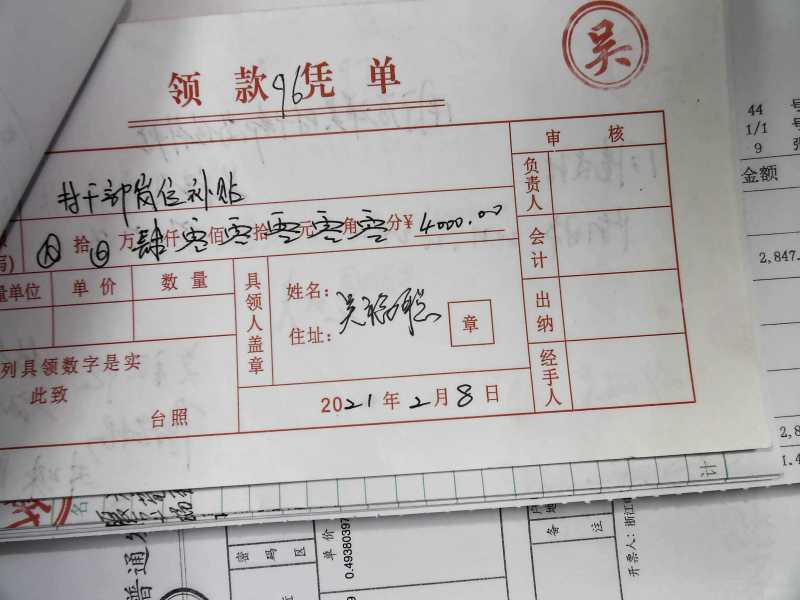 吴
领款凭单
96
审核
村干部岗位补贴
拾 万肆仟零佰零拾零元零角零分¥4000.00
单位 单价 数量
具领人盖章
姓名：
住址：
章
负责人
会计
出纳
经手人
列具领数字是实
此致
台照
2021年2月8日
44 号
1/1 号
9 张
金额
2,847.
2,8
1.4
计
名
普通
密码区
单价
0.49380397
备注
开票人：浙江